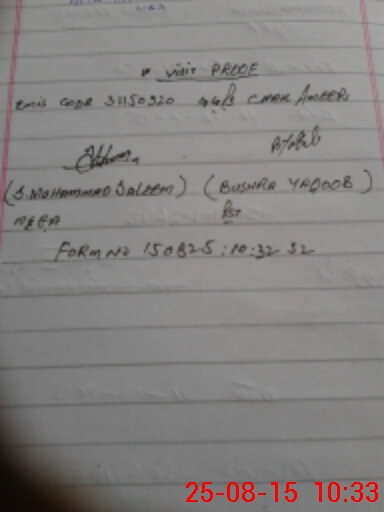 * VISIT PROOF
EMIS CODE 31150320 GGPS CHAK AMEERS
(S. MUHAMMAD SALEEM) (BUSHRA YAQOOB)
MEEA
FORM NO 150825:10:32 52
25-08-15 10:33